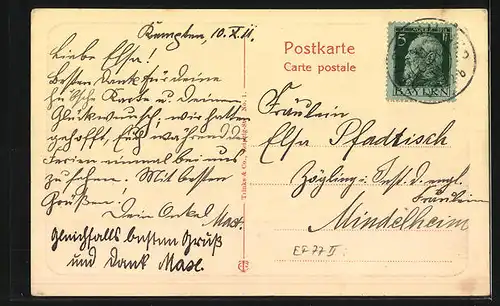 Kempten, 10.X.11.
Liebe Elsa!
Besten Dank für deine
hübsche Karte u. deinen
Glückwunsch, wir hatten
gehofft, Euch während der
Ferien einmal bei uns
zu sehen. Mit besten
Grüßen!
Dein Onkel
Gleichfalls besten Gruß
und Dank
Postkarte
Carte postale
5
BAYERN
Fräulein
Elsa Pfadtisch
Zögling i. Inst. d. engl.
Fräulein
Mindelheim